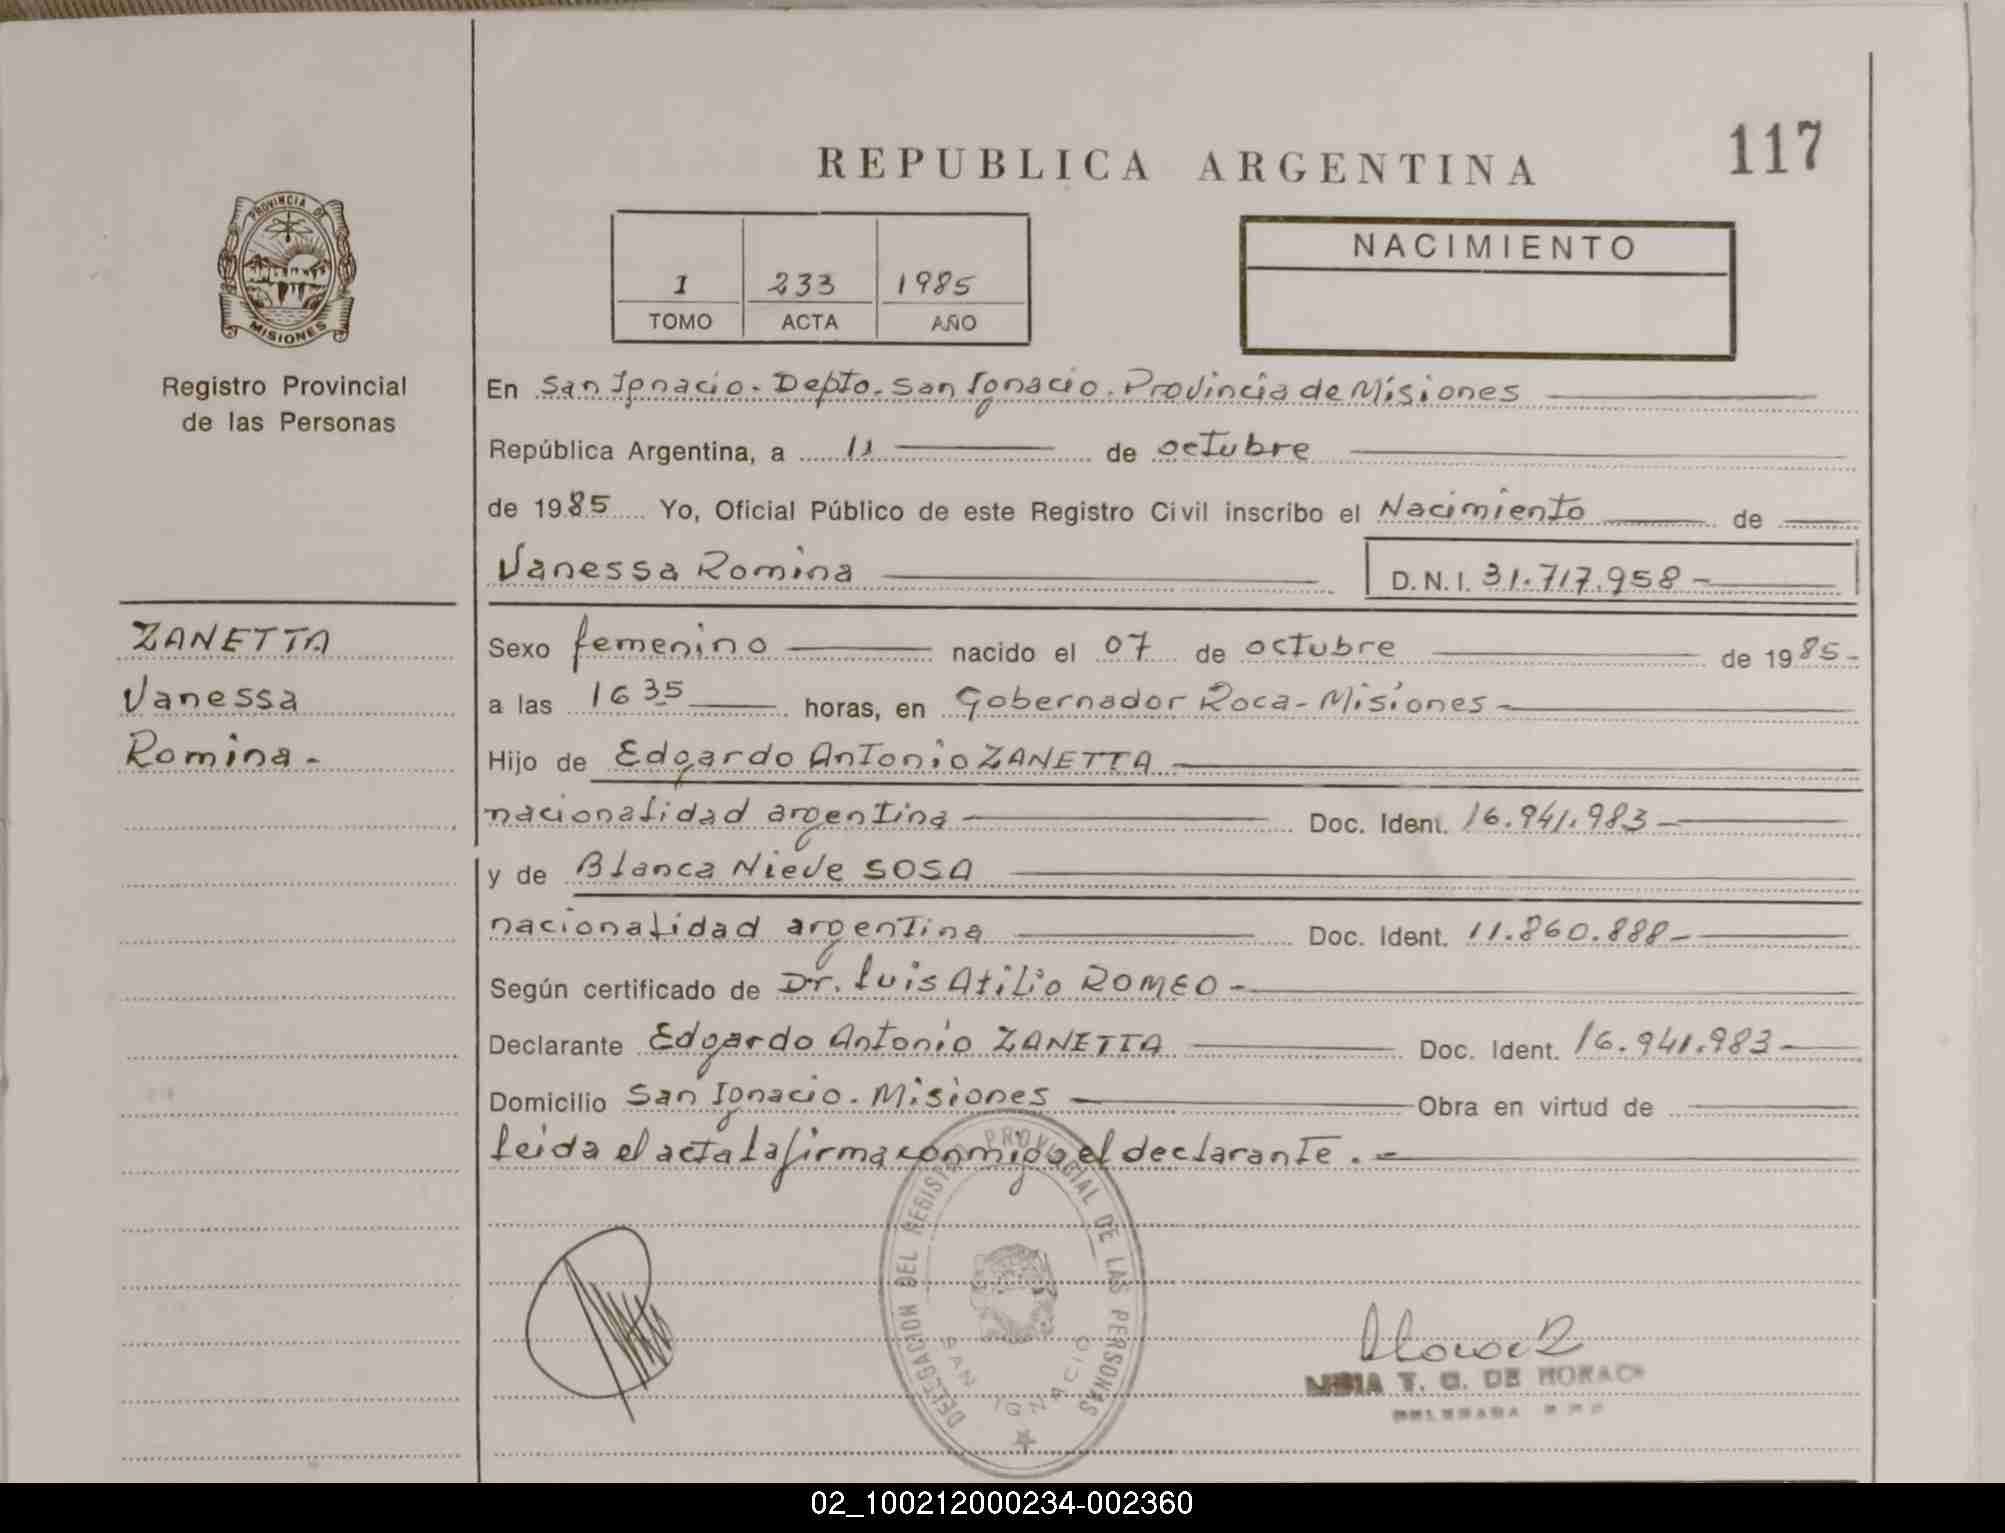 117
REPUBLICA ARGENTINA
PROVINCIA DE
MISIONES
Registro Provincial
de las Personas
I 233 1985
TOMO ACTA AÑO
NACIMIENTO
En San Ignacio. Depto. San Ignacio. Provincia de Misiones
República Argentina, a 11 de octubre
de 1985 Yo, Oficial Público de este Registro Civil inscribo el Nacimiento de
Vanessa Romina D.N.I. 31.717.958-
ZANETTA
Vanessa
Romina-
Sexo femenino nacido el 07 de octubre de 1985-
a las 16 35 horas, en Gobernador Roca-Misiones-
Hijo de Edgardo Antonio ZANETTA
nacionalidad argentina Doc. Ident. 16.941.983-
y de Blanca Nieve SOSA
nacionalidad argentina Doc. Ident. 11.860.888-
Según certificado de Dr. Luis Atilio ROMEO-
Declarante Edgardo Antonio ZANETTA Doc. Ident. 16.941.983-
Domicilio San Ignacio. Misiones Obra en virtud de
leida el acta la firma conmigo el declarante.-
DELEGACION DEL REGISTRO PROVINCIAL DE LAS PERSONAS
SAN IGNACIO
T. G. DE
02_100212000234-002360